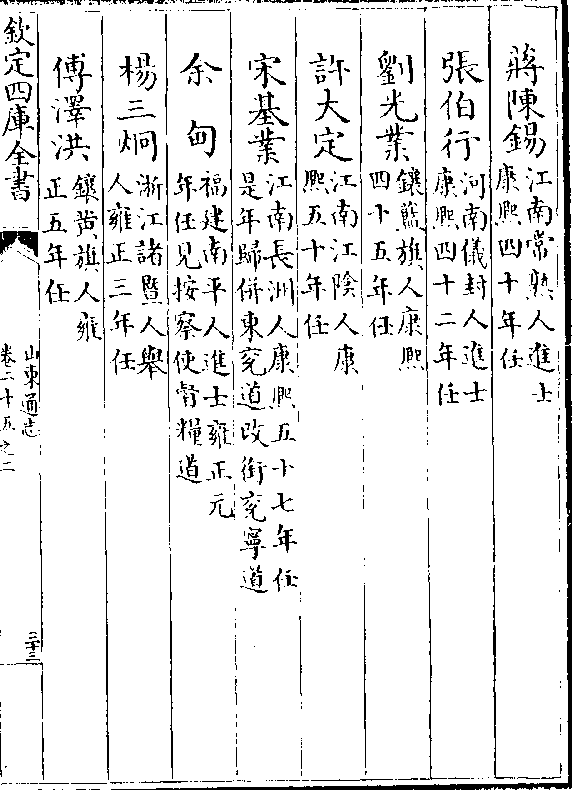 蔣陳錫江南常熟人進士
康熙四十年任
張伯行河南儀封人進士
康熙四十二年任
劉光業鑲藍旗人康熙
四十五年任
許大定江南江陰人康
熙五十年任
宋基業江南長洲人康熙五十七年任
是年歸併東兖道改銜兖寧道
余甸福建南平人進士雍正元
年任見按察使督糧道
楊三炯浙江諸暨人舉
人雍正三年任
傅澤洪鑲黃旗人雍
正五年任
欽定四庫全書
山東通志
卷二十五之二
三十三